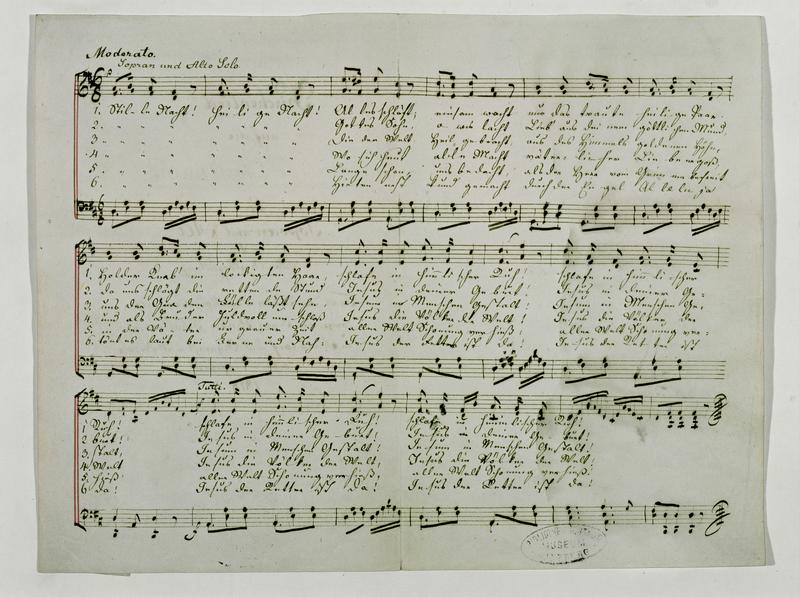 Moderato.
Sopran und Alto Solo.
1. Stil-le Nacht! Hei-li-ge Nacht! Al-les schläft; einsam wacht nur das traute heilige Paar.
2. " " " " " " " Gottes Sohn, o wie lacht Lieb' aus deinem göttlichen Mund,
3. " " " " " " " Die der Welt Heil gebracht, aus des Himmels goldenen Höhn,
4. " " " " " " " Wo sich heut alle Macht väterlicher Liebe ergoß,
5. " " " " " " " Lange schon uns bedacht, als der Herr vom Grimme befreit
6. " " " " " " " Hirten erst kund gemacht durch der Engel Alleluja
1. Holder Knab' im lockigten Haar, schlafe in himmlischer Ruh! schlafe in himmlischer
2. da uns schlägt die rettende Stund Jesus in deiner Geburt! Jesus in deiner Ge-
3. uns der Gnaden Fülle läßt sehn Jesum in Menschen Gestalt! Jesum in Menschen Ge-
4. und als Bruder huldvoll umschloß Jesus die Völker der Welt! Jesus die Völker der
5. in der Väter urgrauer Zeit aller Welt Schonung verhieß! aller Welt Schonung ver-
6. tönt es laut bei Ferne und Nah: Jesus der Retter ist da! Jesus der Retter ist
Tutti.
1. Ruh! schlafe in himmlischer Ruh! schlafe in himmlischer Ruh!
2. burt! Jesus in deiner Geburt! Jesus in deiner Geburt!
3. stalt! Jesum in Menschen Gestalt! Jesum in Menschen Gestalt!
4. Welt Jesus die Völker der Welt, Jesus die Völker der Welt!
5. hieß! aller Welt Schonung verhieß, aller Welt Schonung verhieß!
6. da! Jesus der Retter ist da! Jesus der Retter ist da!
MUSEUM